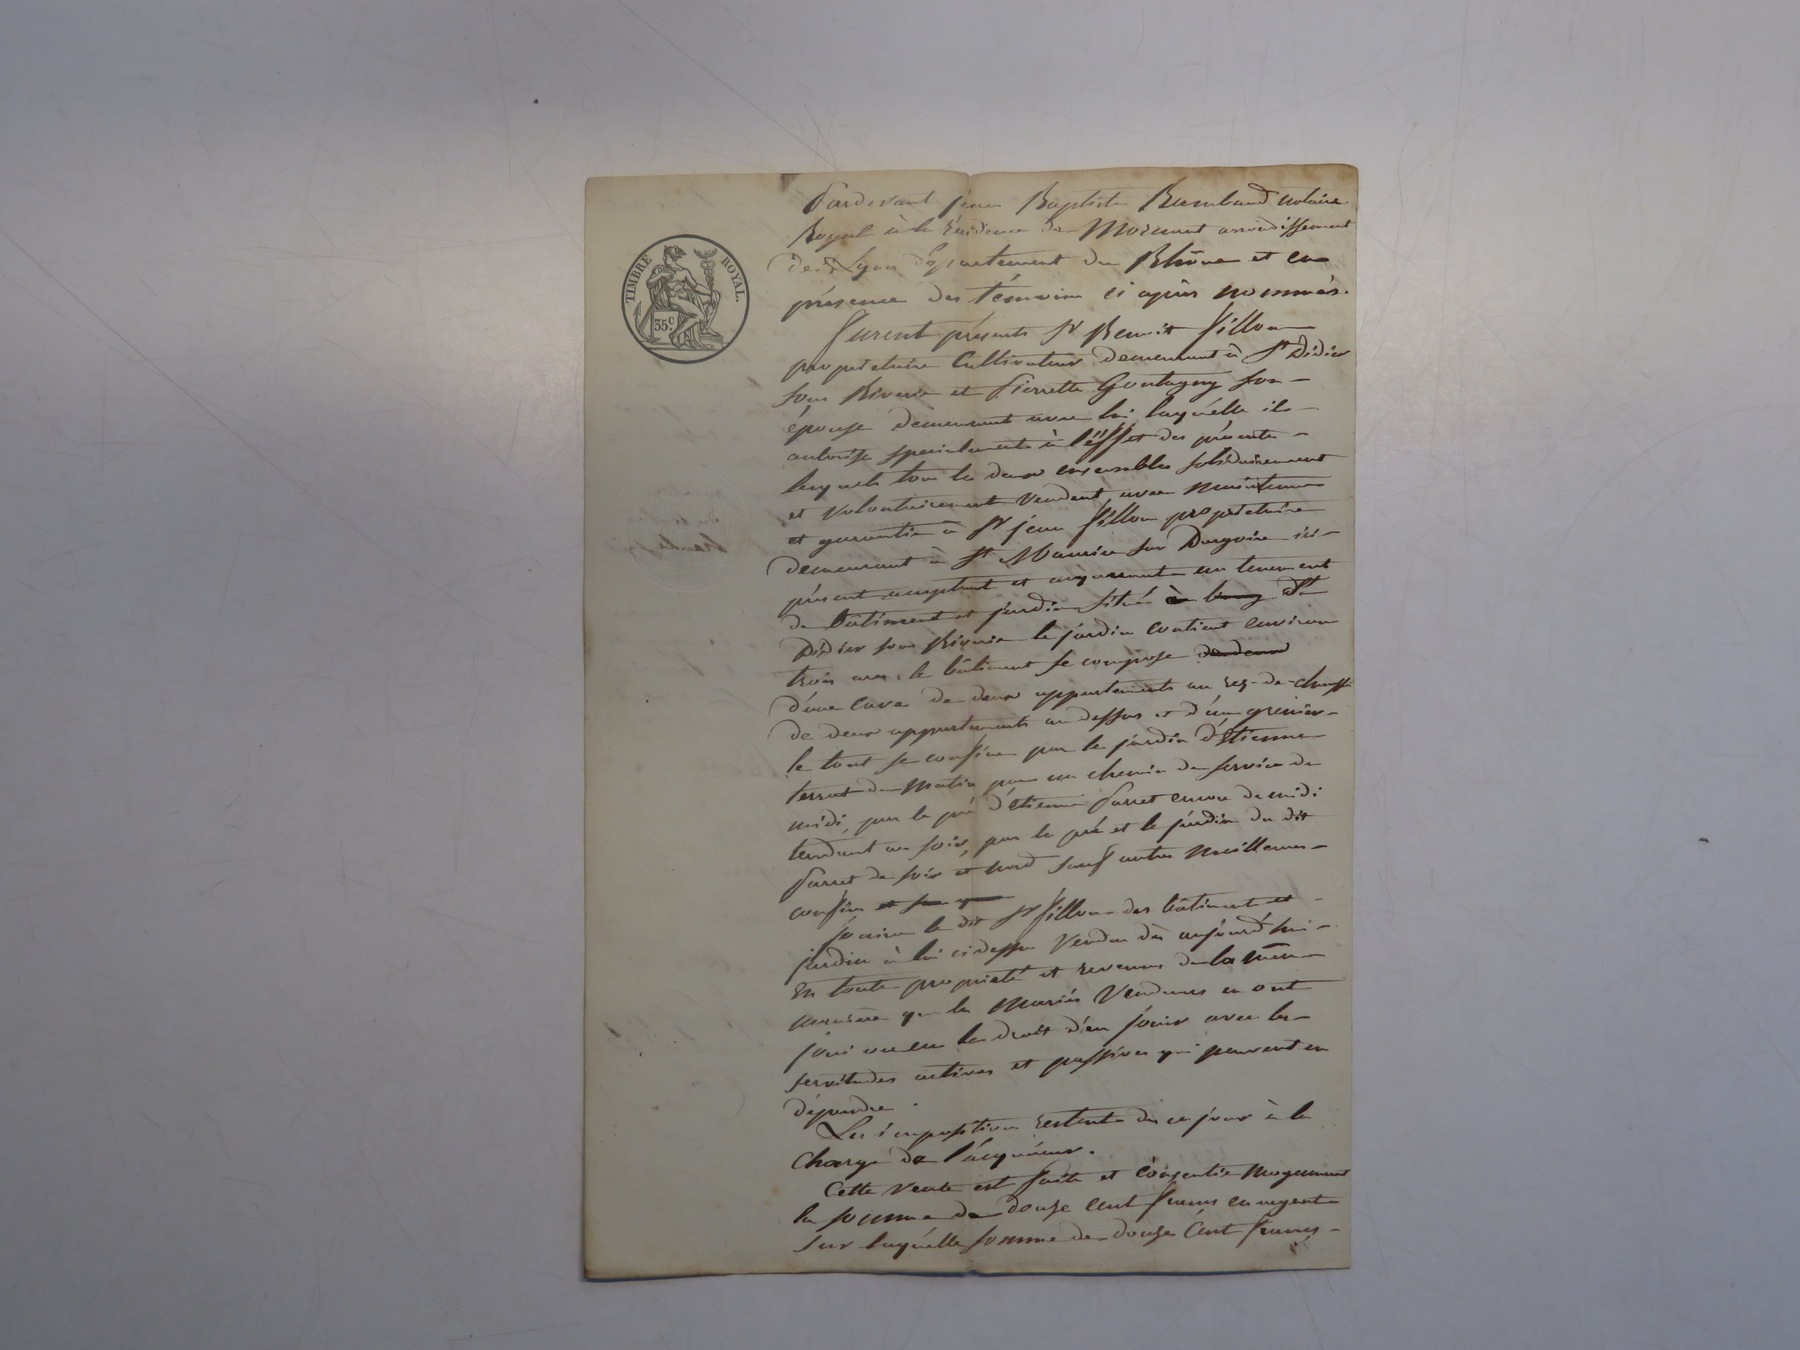 TIMBRE ROYAL.
35c
Pardevant jean Baptiste Rambaud notaire
Royal à la Residence de Mornant arrondissement
de Lyon département du Rhône et en
présence des témoins ci après nommés.
furent présents Sr Benoit fillon
propriétaire Cultivateur demeurant à St Didier
sous Riverie et Pierrette Goutagny son
épouse demeurant avec lui laquélle il
autorise specialement à l'éffet des présentes
lesquels tous les deux ensembles solidairement
et volontairement vendent avec maintenue
et garantie à Sr jean fillon propriétaire
demeurant à St Maurice sur Dargoire ici
présent acceptant et acquerant un tenement
de bâtiment et jardin situés à bourg St
Didier sous Riverie le jardin contient environ
trois ares, le bâtiment se compose
d'une cave de deux appartements au rez-de-chaussé
de deux appartements au dessus et d'un grenier
le tout se confine par le jardin d'étienne
terrat de Matin par un chemin de service de
midi, par le pré d'étienne Parret encore de midi
tendant au soir, par le pré et le jardin du dit
Parret de soir et nord sauf autres meilleures
confins
jouira le dit Sr fillon des bâtiment et
jardin à lui ci dessus vendus dès aujourd'hui
En toute propriété et revenus de la même
manière que les Mariés Vendeurs en ont
joui ou eu le droit d'en jouir avec les
servitudes actives et passives qui peuvent en
dépendre.
Les imposition restent dès ce jour à la
charge de l'acquéreur.
Cette vente est faite et consentie moyennant
la somme de douze cent francs en argent
sur laquélle somme de douze Cent francs